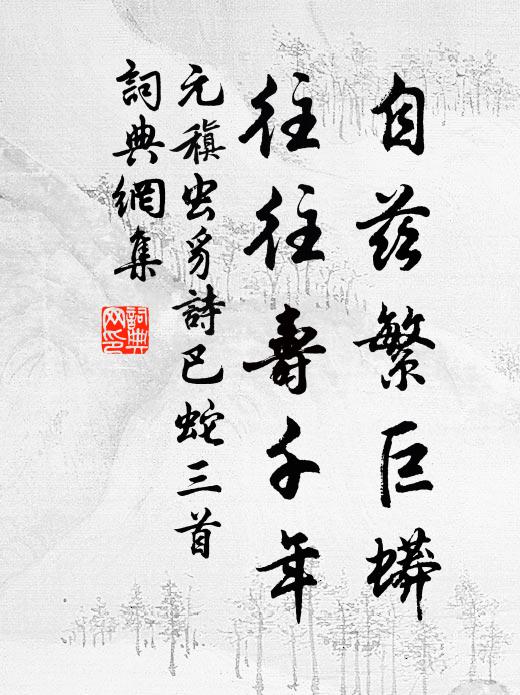 自茲繁巨蟒
往往壽千年
元稹虫豸詩巴蛇三首
詞典網集
詞典網印